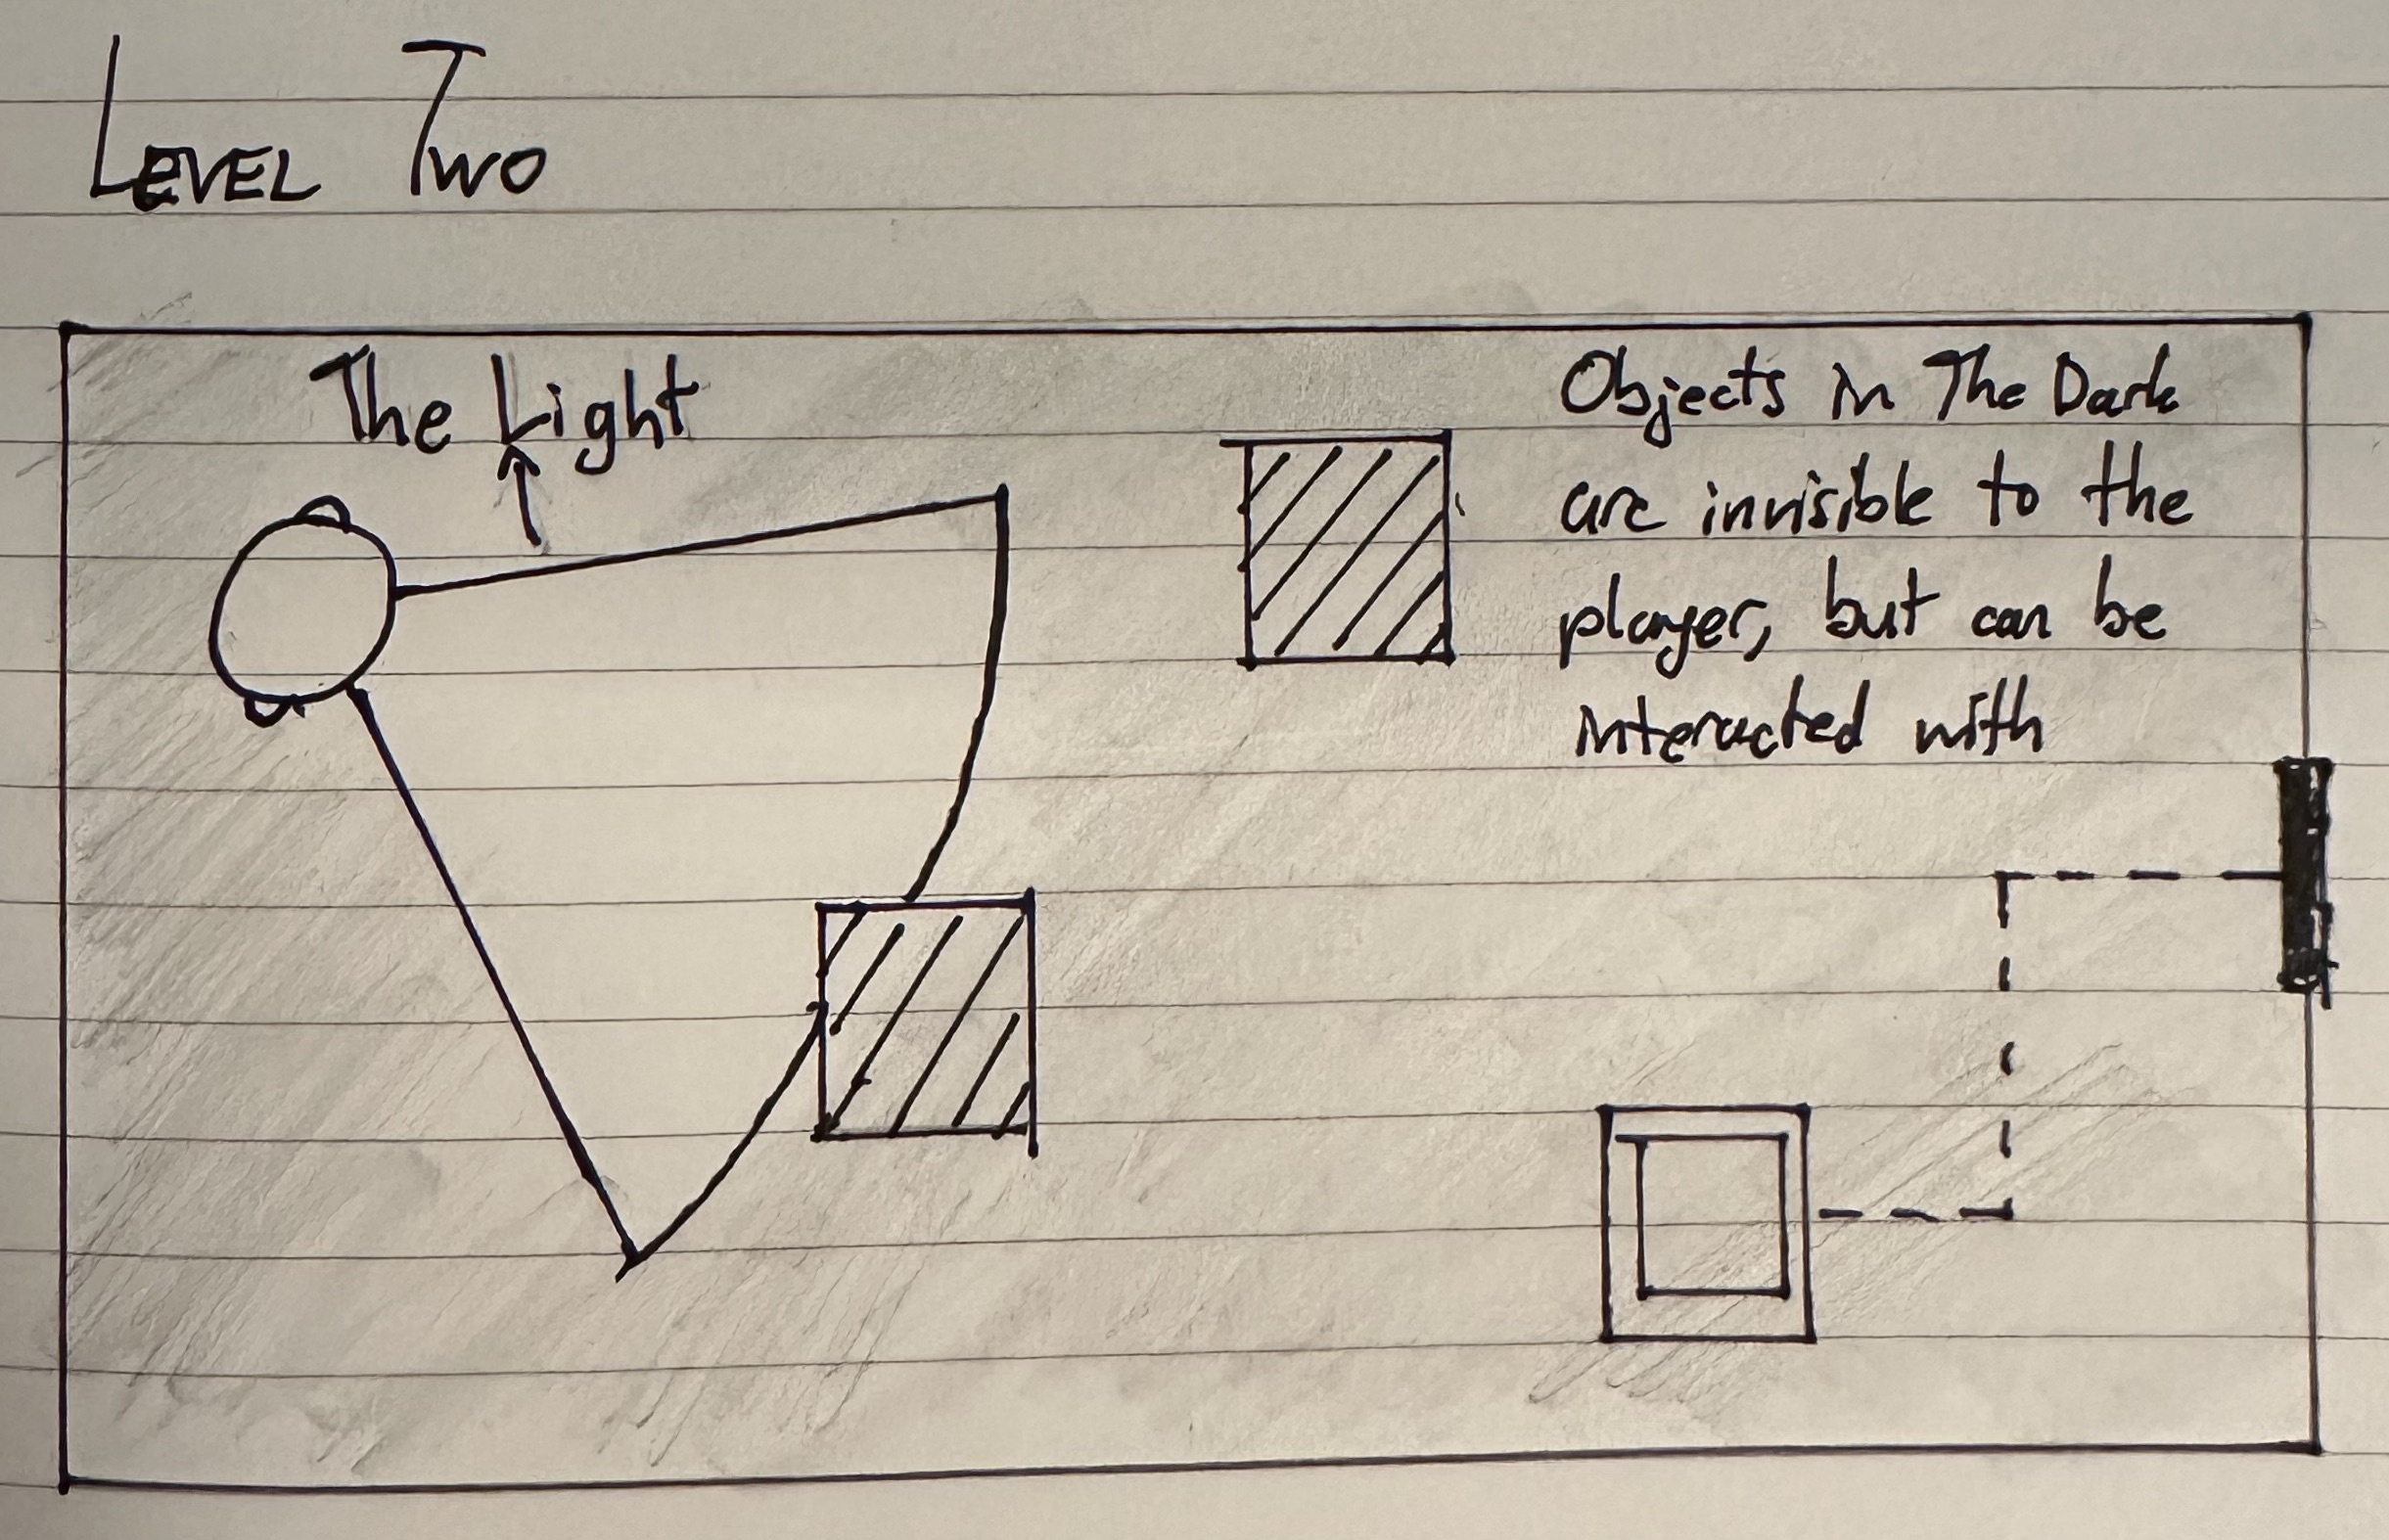 LEVEL TWO
The Light
Objects in The Dark
are invisible to the
player, but can be
interacted with